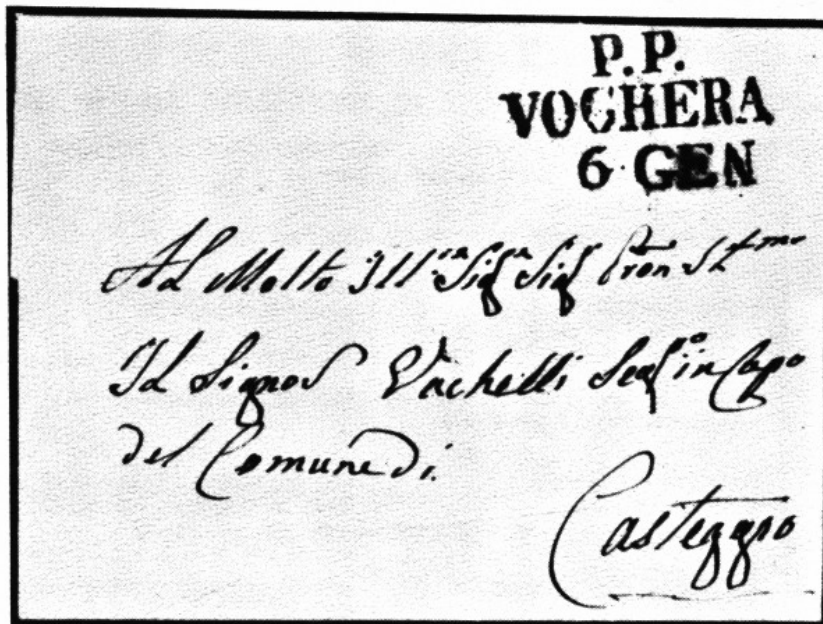 P.P.
VOGHERA
6 GEN
Al Molto Ill.re Sig.r Sig.r Pron
Il Signor Vachelli in Capo
del Comune di
Casteggio